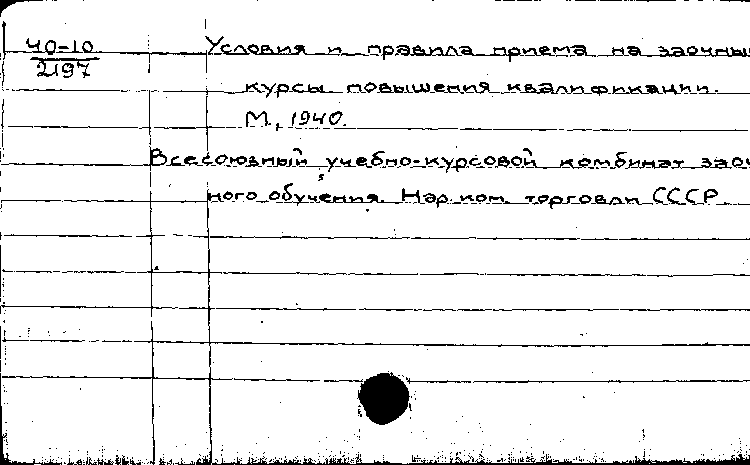 40-10
2197
Условия и правила приема на заочны
курсы повышения квалификации.
М., 1940.
Всесоюзный учебно-курсовой комбинат заоч
ного обучения. Нар. ком. торговли СССР.